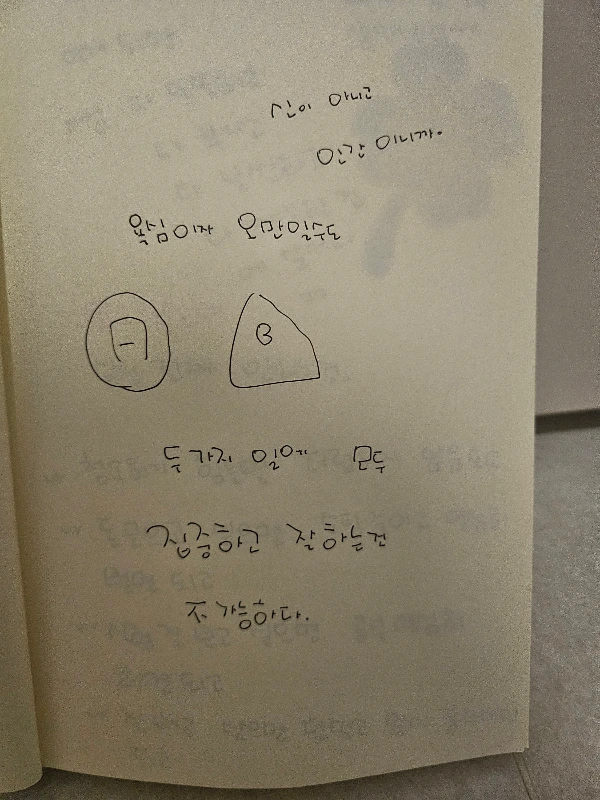 신이 아니고
인간 이니까.
욕심이자 오만일수도
A B
두가지 일에 모두
집중하고 잘하는건
불가능하다.